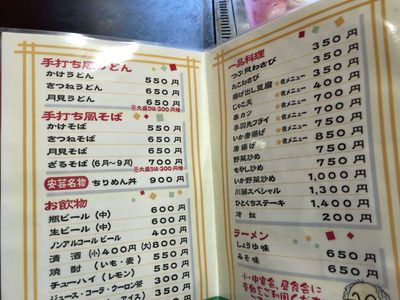 手打ち風うどん
かけうどん 550円
きつねうどん 650円
月見うどん 650円
※大盛りは300円増
手打ち風そば
かけそば 550円
きつねそば 650円
月見そば 650円
ざるそば(6月〜9月) 700円
※大盛りは300円増
安芸名物 ちりめん丼 900円
お飲物
瓶ビール(中) 600円
生ビール(中) 600円
ノンアルコールビール 400円
清酒 (小)400円(大)800円
焼酎(いも・麦) 550円
チューハイ(レモン) 550円
ジュース・コーラ・ウーロン茶 300円
一品料理
つぶ貝わさび 350円
たこわさび 350円
揚げ出し豆腐 ★夜メニュー 400円
じゃこ天 ★夜メニュー 700円
串カツ 700円
手羽先フライ ★夜メニュー 750円
いか唐揚げ ★夜メニュー 850円
唐揚げ 750円
野菜炒め 750円
もやし炒め 750円
いか野菜炒め 1,000円
川藤スペシャル 1,300円
ひとくちステーキ 1,400円
冷奴 200円
ラーメン
しょうゆ味 650円
みそ味 650円
小中宴会、昼食会に